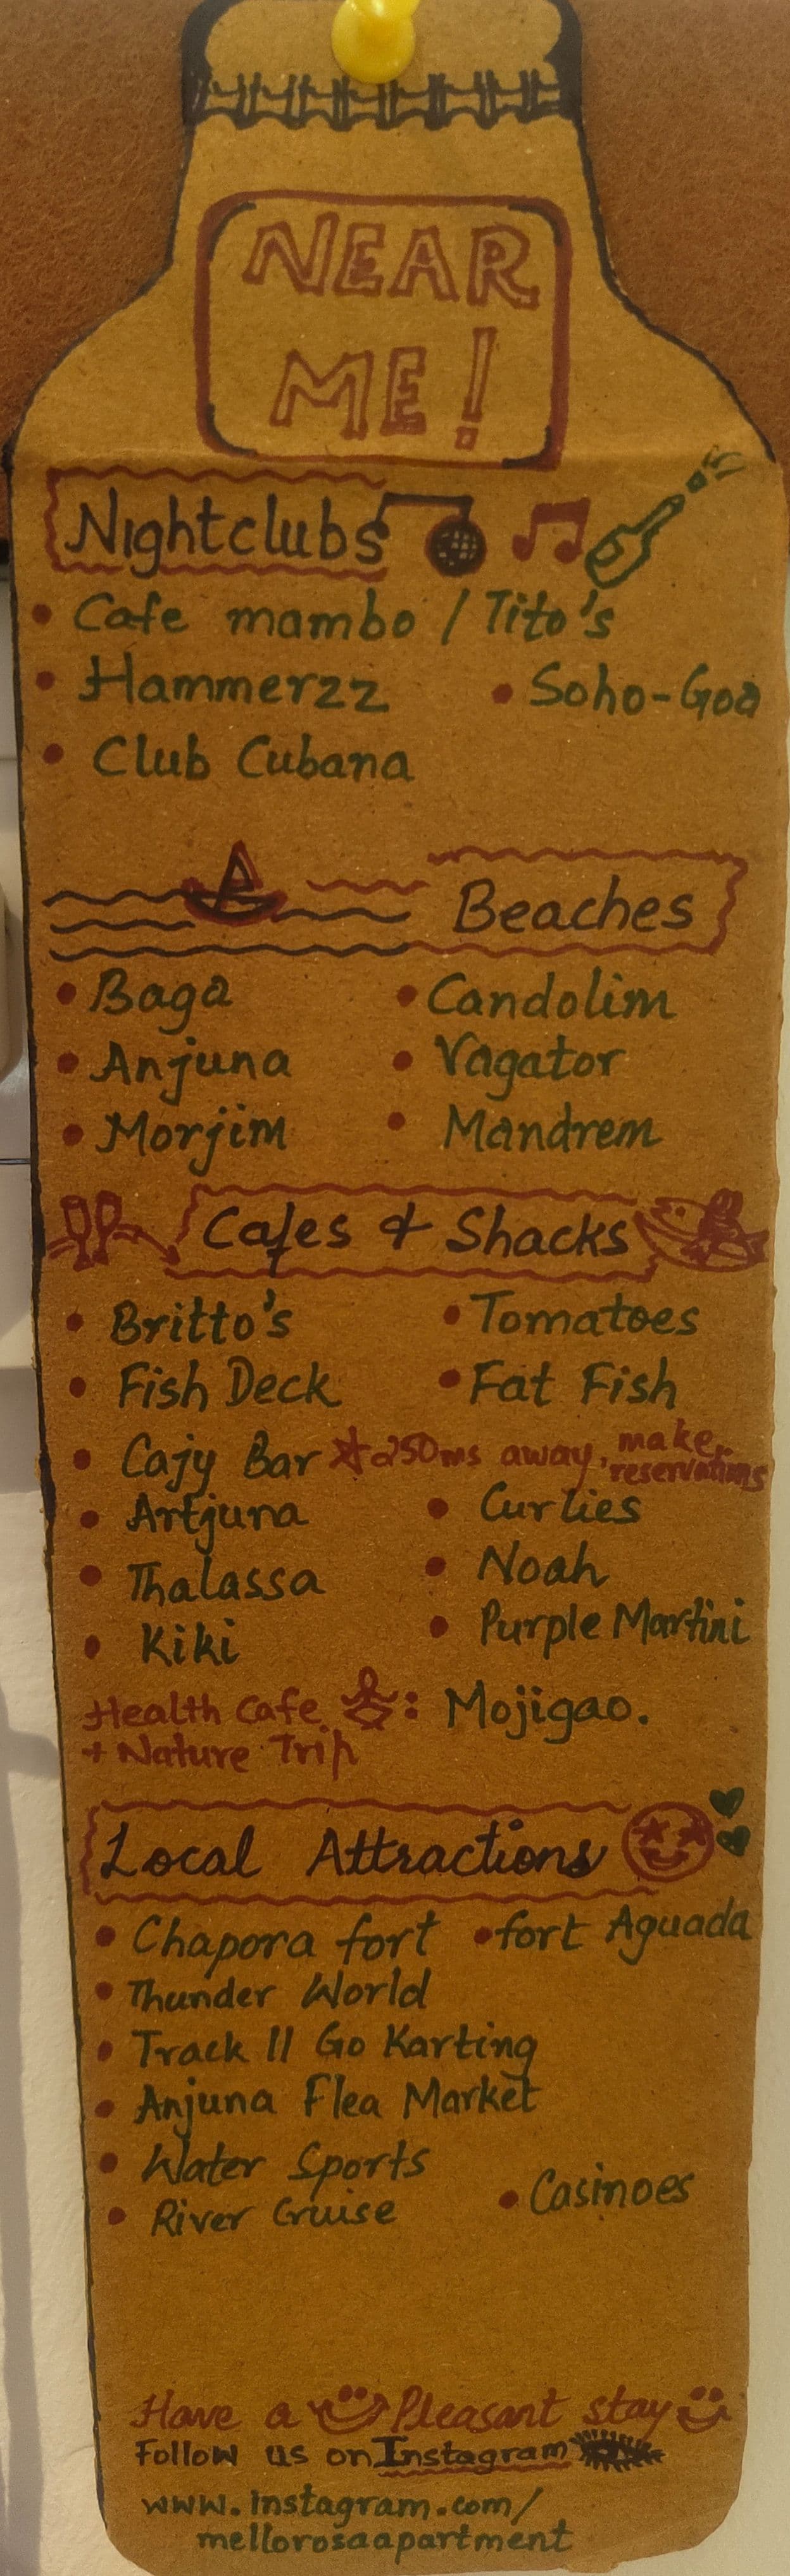 NEAR
ME!
Nightclubs
• Cafe mambo / Tito's
• Hammerzz • Soho-Goa
• Club Cubana
Beaches
• Baga • Candolim
• Anjuna • Vagator
• Morjim • Mandrem
Cafes & Shacks
• Britto's • Tomatoes
• Fish Deck • Fat Fish
• Cajy Bar * 250ms away, make reservations
• Artjuna • Curlies
• Thalassa • Noah
• Kiki • Purple Martini
Health Cafe : Mojigao.
+ Nature Trip
Local Attractions
• Chapora fort • fort Aguada
• Thunder World
• Track 11 Go Karting
• Anjuna Flea Market
• Water Sports
• River Cruise • Casinoes
Have a Pleasant stay
Follow us on Instagram
www.instagram.com/
mellorosaapartment